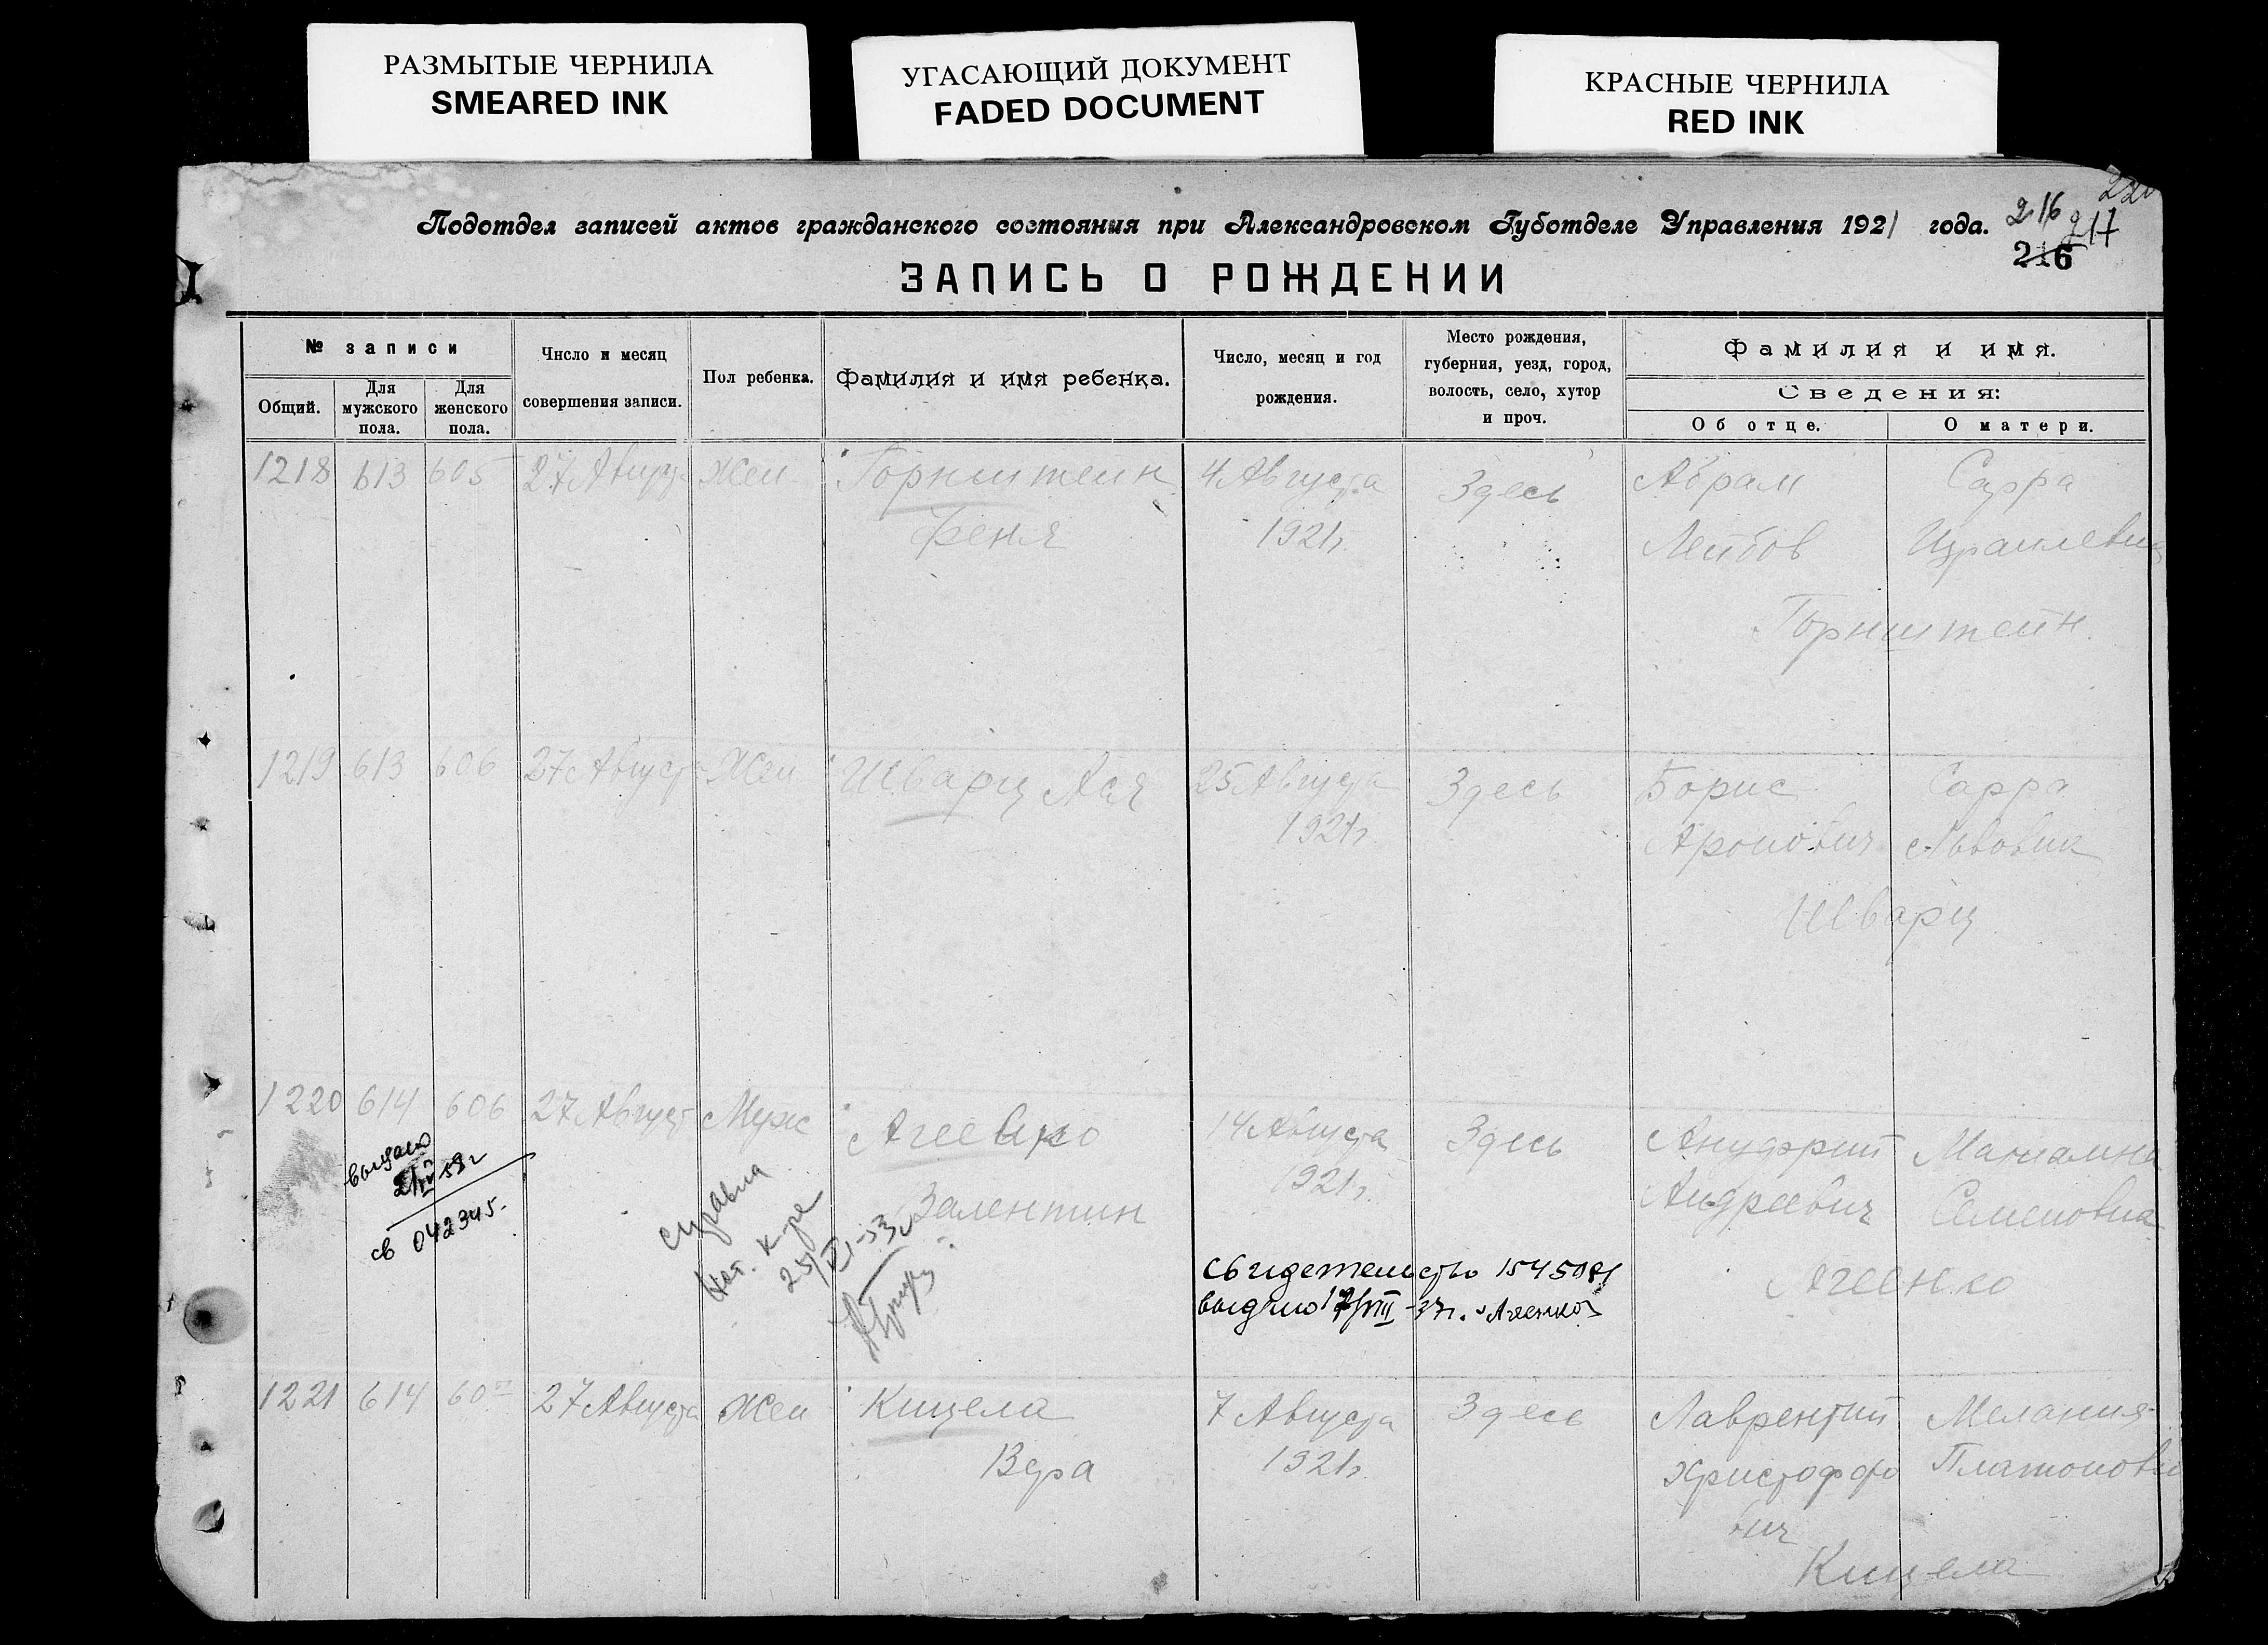 РАЗМЫТЫЕ ЧЕРНИЛА
SMEARED INK
УГАСАЮЩИЙ ДОКУМЕНТ
FADED DOCUMENT
КРАСНЫЕ ЧЕРНИЛА
RED INK
Подотдел записей актов гражданского состояния при Александровском Губотделе Управления 1921 года.
216 217
216
ЗАПИСЬ О РОЖДЕНИИ
№ записи
Общий.
Для мужского пола.
Для женского пола.
Число и месяц совершения записи.
Пол ребенка.
Фамилия и имя ребенка.
Число, месяц и год рождения.
Место рождения, губерния, уезд, город, волость, село, хутор и проч.
Фамилия и имя.
Сведения:
Об отце.
О матери.
1218 613 605 27 Август Жен Горнштейн 4 Августа Здесь Абрам Сарра
Феня 1921г. Лейбов Израилевна
Горнштейн.
1219 613 606 27 Августа Жен Шварц Ася 25 Августа Здесь Борис Сарра
1921г. Аронович Львовна
Шварц
1220 614 606 27 Август Муж Агеенко 14 Августа Здесь Ануфрий Марианна
Валентин 1921г. Андреевич Семеновна
Агеенко
выдано
58г
св 042345.
справка
25/XI-53г
свидетельство
выдано 17/VIII-37г. "Агеенко"
1221 614 607 27 Августа Жен Кицела 7 Августа Здесь Лаврентий Мелания
Вера 1921г. Христоффо Платонов
вич
Кицела